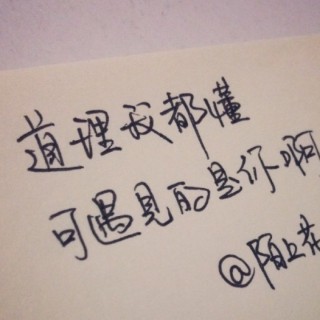 道理我都懂
可遇見的是你啊
@陌上花